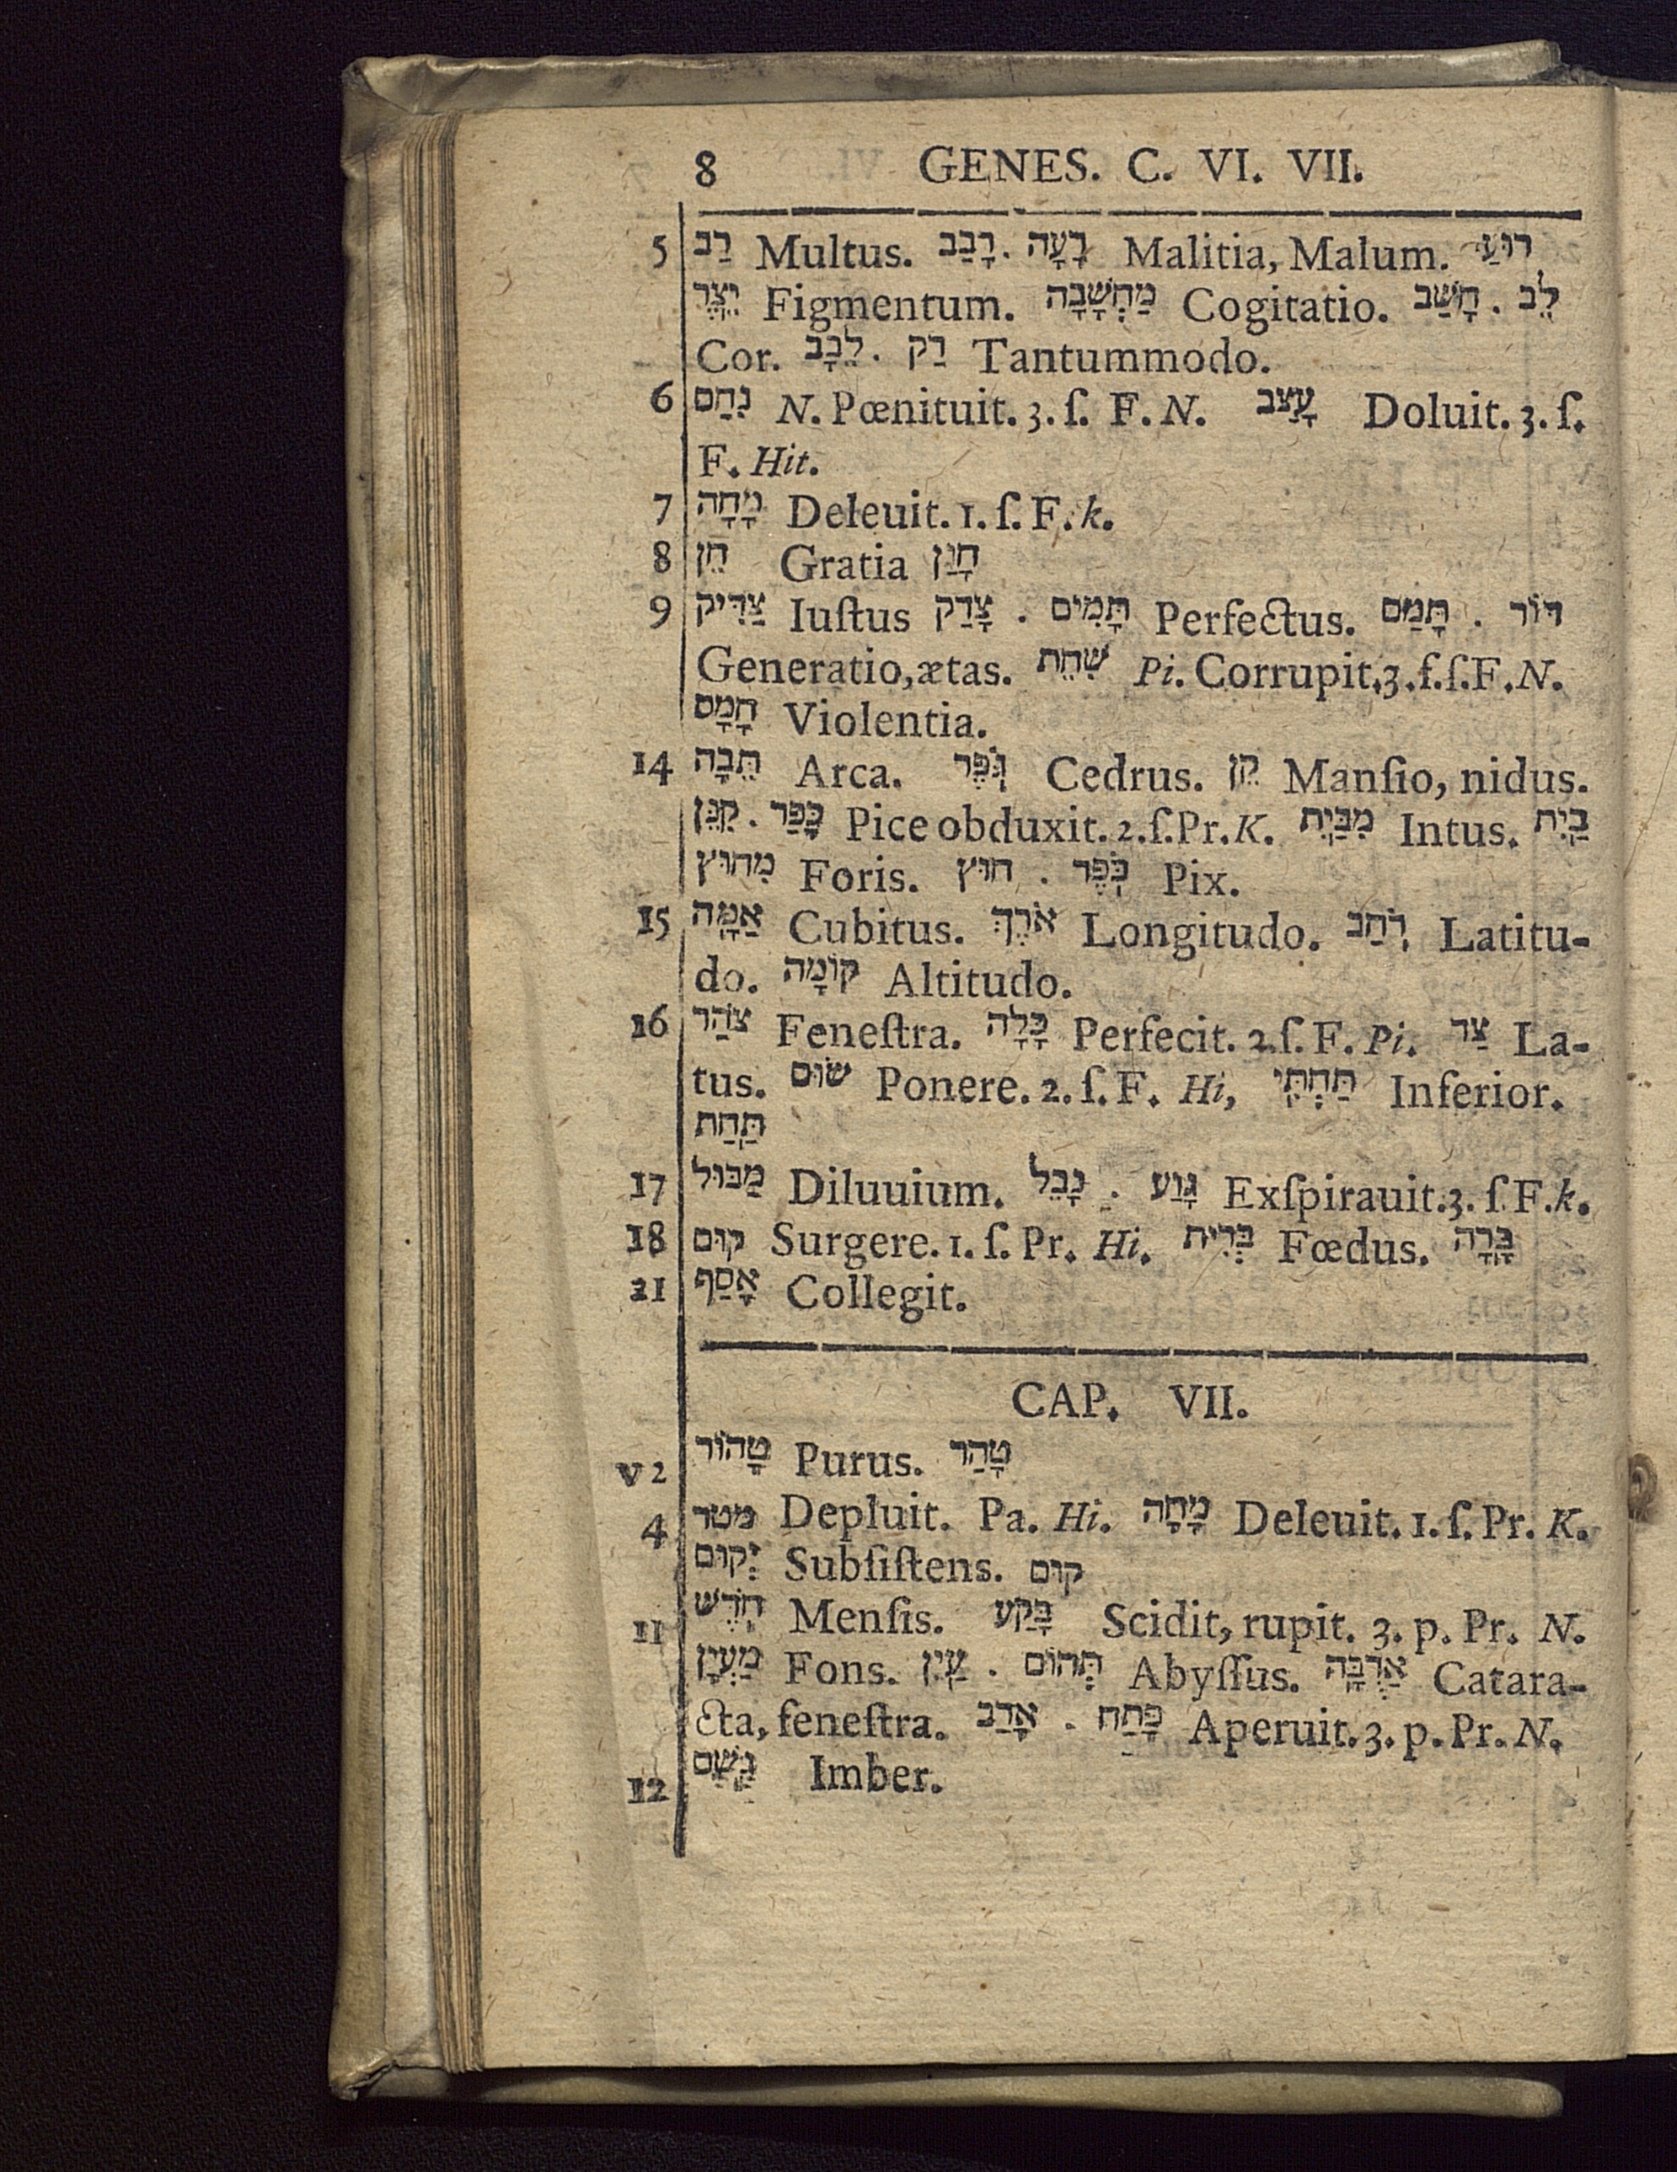 8 GENES. C. VI. VII.
5 רַב Multus. רָבַב. רָעָה Malitia, Malum. רוּעַ
יֵצֶר Figmentum. מַחְשָׁבָה Cogitatio. חָשַׁב. לֵב
Cor. לֵבָב. רַק Tantummodo.
6 נִחַם N. Pœnituit. 3. ſ. F. N. עָצַב Doluit. 3. ſ.
F. Hit.
7 מָחָה Deleuit. 1. ſ. F. k.
8 חֵן Gratia חָנַן
9 צַדִּיק Iuſtus צָדַק . תָּמִים Perfectus. תָּמַם . דּוֹר
Generatio, ætas. שִׁחֵת Pi. Corrupit. 3. f. ſ. F. N.
חָמָס Violentia.
14 תֵּבָה Arca. גֹּפֶר Cedrus. קֵן Manſio, nidus.
קִנֵּן . כָּפַר Pice obduxit. 2. ſ. Pr. K. מִבַּיִת Intus. בַּיִת
מִחוּץ Foris. חוּץ . כֹּפֶר Pix.
15 אַמָּה Cubitus. אֹרֶךְ Longitudo. רֹחַב Latitu-
do. קוֹמָה Altitudo.
16 צֹהַר Feneſtra. כָּלָה Perfecit. 2. ſ. F. Pi. צַר La-
tus. שׂוּם Ponere. 2. ſ. F. Hi, תַּחְתִּי Inferior.
תַּחַת
17 מַבּוּל Diluuium. נָבֵל . גָּוַע Exſpirauit. 3. ſ F. k.
18 קוּם Surgere. 1. ſ. Pr. Hi. בְּרִית Fœdus. בָּרָה
21 אָסַף Collegit.
CAP. VII.
v 2 טָהוֹר Purus. טָהַר
4 מטר Depluit. Pa. Hi. מָחָה Deleuit. 1. ſ. Pr. K.
יְקוּם Subſiſtens. קוּם
11 חֹדֶשׁ Menſis. בָּקַע Scidit, rupit. 3. p. Pr. N.
מַעְיָן Fons. עַיִן . תְּהוֹם Abyſſus. אֲרֻבָּה Catara-
cta, feneſtra. אָרַב . פָּתַח Aperuit. 3. p. Pr. N.
12 גֶּשֶׁם Imber.